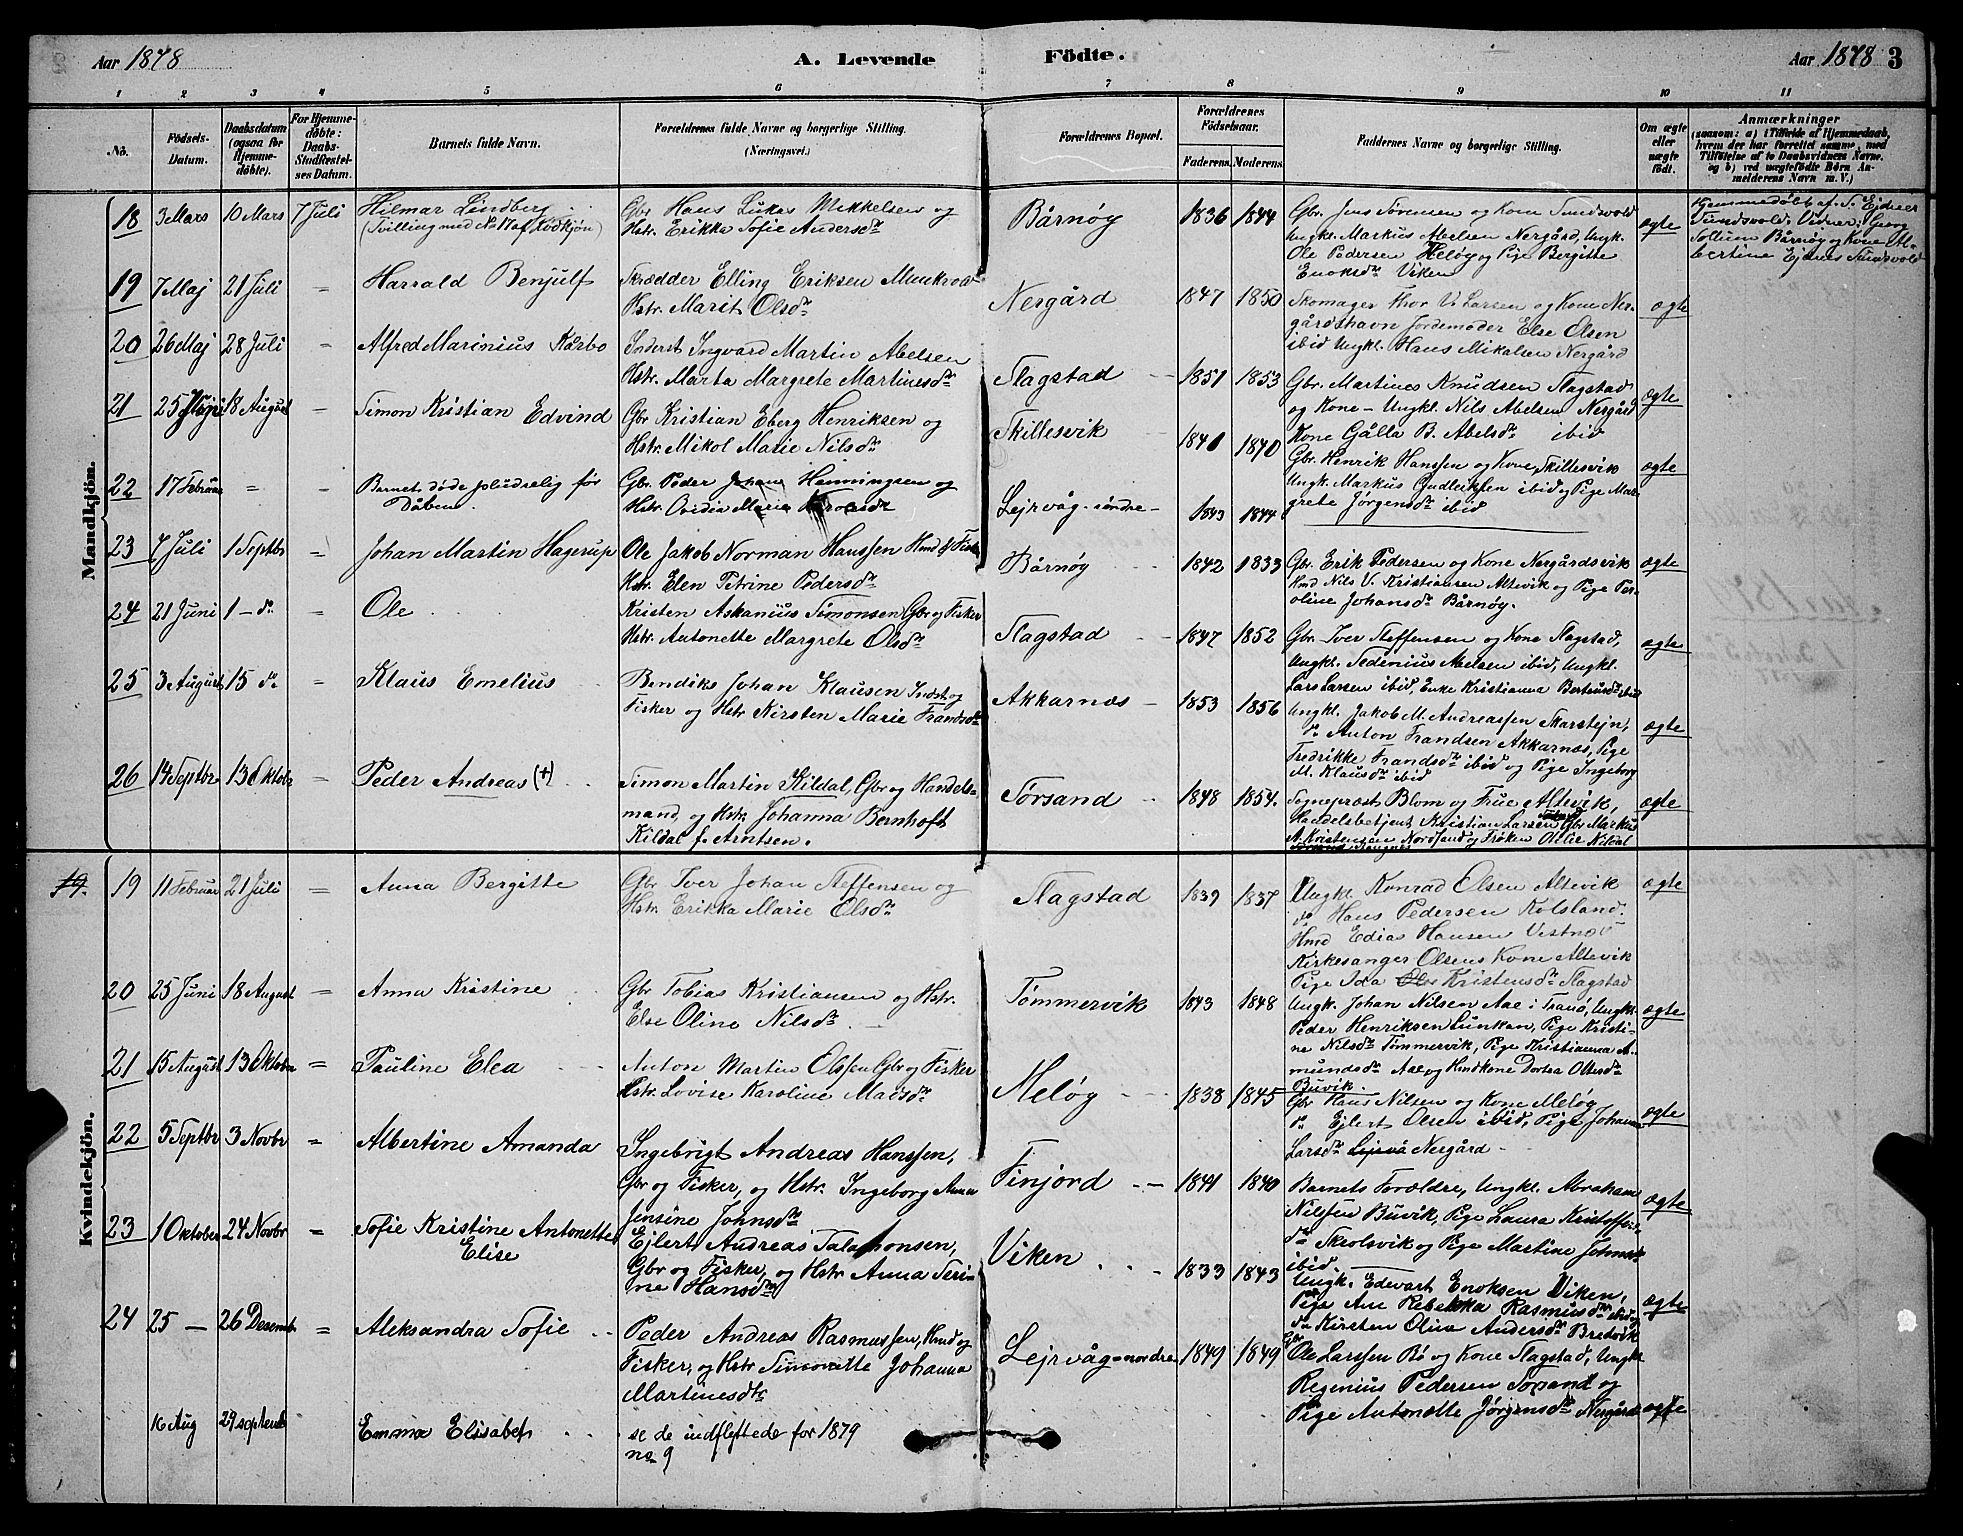 Aar 1878
A. Levende
Födte.
Aar 1878
3
1 2 3 4 5 6 7 8 9 10 11
No.
Födsels-
Datum.
Daabsdatum
(ogsaa for
Hjemme-
döbte).
For Hjemme-
döbte:
Daabs-
Stadfæstel-
ses Datum.
Barnets fulde Navn.
Forældrenes fulde Navne og borgerlige Stilling.
(Næringsvei.)
Forældrenes Bopæl.
Forældrenes
Födselsaar.
Faderens. Moderens.
Faddernes Navne og borgerlige Stilling.
Om ægte
eller
uægte
födt.
Anmærkninger
(saasom: a) i Tilfælde af Hjemmedaab,
hvem der har forrettet samme, med
Tilföielse af to Daabsvidners Navne.
og b) ved uægtefödte Börn An-
melderens Navn m. V.)
Mandkjön.
18 3 Mars 10 Mars 7 Juli
Hilmar Lindberg
(Tvilling med No 17 af Kvdkjön)
Gbr. Hans Lukas Mikkelsen og
Hstr. Erikka Sofie Andersdr
Bårnøy
1836 1844
Gbr. Jens Sørensen og Kone Sundsvold
Ungkl. Markus Abelsen Nergård, Ungk.
Ole Pedersen Heløy og Pige Bergitte
Enoksdr Viken
ægte
Hjemmedöbt af S. Ejdner
Sundsvold. Vidner: Georg
Sollum Bårnøy og Kone Al-
bertine Ejdnes Sundsvold
19 7 Maj 21 Juli =
Harrald Benjulf
Skrædder Elling Eriksen Munkvold
Hstr. Marit Olsdr
Nergård
1847 1850
Skomager Thor V. Larsen og Kone Ner-
gårdshavn Jordemoder Else Olsen
ibid Ungkl. Hans Mikalsen Nergård
ægte
20 26 Maj 28 Juli -
Alfred Marinius Kårbø
Inderst Ingvard Martin Abelsen
Hstr. Marta Margrete Martinesdr
Slagstad
1851 1853
Gbr. Martines Knudsen Slagstad
og Kone - Ungkl. Nils Abelsen Nergård
Kone Gålla B. Abelsdr ibid
ægte
21 25 18 August -
Simon Kristian Edvind
Gbr Kristian Eberg Henriksen og
Hstr. Mikol Marie Nilsdr
Skillesvik
1841 1840
Gbr. Henrik Hanssen og Kone, Skillesvik
Ungk. Markus Gudleiksen ibid og Pige Mar-
grete Jørgensdr ibid
ægte
22 17 Februar = -
Barnet døde pludselig før
Dåben.
Gbr. Peder Johan Henningsen og
Hstr. Ovidia Marie
Lejrvåg-søndre-
1843 1844
23 7 Juli 1 Septbr =
Johan Martin Hagerup
Ole Jakob Norman Hanssen Hmd & Fisker
Hstr. Elen Petrine Pedersdr
Bårnøy
1842 1833
Gbr. Erik Pedersen og Kone Nergårdsvik
Hmd Nils V. Kristiansen Altevik og Pige Pe-
oline Johansdr Bårnøy.
ægte
24 21 Juni 1 - do =
Ole
Kristen Askaniüs Simonsen Gbr og Fisker
Hstr. Antonette Margrete Olsdr
Slagstad
1847 1852
Gbr. Iver Steffensen og Kone Slagstad,
Ungkl. Sedenius Abelsen ibid, Ungkl.
Lars Larsen ibid, Enke Kristianna Berteusdr ibid
ægte
25 3 August 15 do =
Klaus Emelius
Bendiks Johan Klausen Indst og
Fisker og Hstr Kirsten Marie Frandsdr
Akkarnæs
1853 1856
Ungkl. Jakob M. Andreassen Skarstejn,
do Anton Frandsen Akkarnæs, Pige
Fredrikke Frandsdr ibid og Pige Ingeborg
M. Klausdr ibid
ægte
26 14 Septbr 13 Oktobr =
Peder Andreas (+)
Simon Martin Kildal, Gbr og Handels-
mand, og Hstr. Johanna Bernhoft
Kildal f. Arntsen.
Sørsand
1848 1854.
Sognepræst Blom og Frue Altevik,
Handelsbetjent Kristian Larsen Gbr Markus
A. Kristensen Nordsand og Frøken Oline Kildal
ægte
Kvindekjön.
19 11 Februar 21 Juli =
Anna Bergitte
Gbr Iver Johan Steffensen og
Hstr. Erikka Marie Olsdr
Slagstad
1839 1837
Ungkl. Konrad Olsen Altevik
do Hans Pedersen Kolsland.
Hmd Edias Hansen Vestnes
Kirkesanger Olsens Kone Altevik
Pige Ida Kristensdr Slagstad
ægte
20 25 Juni 18 August =
Anna Kristine
Gbr Tobias Kristiansen og Hstr.
Else Oline Nilsdr.
Tømmervik
1843 1848
Ungk. Johan Nilsen Aae i Tranø, Ungkl.
Peder Henriksen Lunkan, Pige Kristi-
ne Nilsdr Tømmervik, Pige Kristianna A-
mundsdr Aae og Hmdkone Dortea Ottesdr
Buvik.
ægte
21 15 August 13 Oktobr =
Pauline Elea
Anton Martin Olssen Gbr og Fisker
Hstr. Lovise Karoline Madsdr
Meløy
1838 1845
Gbr Hans Nilsen og Kone Meløy
do Ejlert Olsen ibid, Pige Johanna
Larsdr Nergård
ægte
22 5 Septbr 3 Novbr =
Albertine Amanda
Ingebrigt Andreas Hanssen,
Gbr og Fisker, og Hstr. Ingeborg Anna
Jensine Johnsdr
Finjord
1841 1840
Barnets Forældre, Ungkl. Abraham
Nilssen Buvik, Pige Laura Kristoffers-
dr Skrolsvik og Pige Martine
ibid
ægte
23 1 Oktober 24 Novbr =
Sofie Kristine Antonette
Elise
Ejlert Andreas Salamonsen,
Gbr og Fisker, og Hstr. Anna Seri-
ne Hansdr
Viken
1833 1843
Ungk. Edevart Enoksen Viken,
Pige Ane Rebekka Rasmusdr ibid og
do Kirsten Olina Andersdr Bredvik
ægte
24 25 — 26 Desemb. =
Aleksandra Sofie
Peder Andreas Rasmussen, Hmd og
Fisker, og Hstr Simonette Johanna
Martinesdtr
Lejrvåg=nordre
1849 1849
Gbr Ole Larssen Bø og Kone Slagstad, Ungkl
Regenius Pedersen Sørsand og
Pige Antonette Jørgensdr Nergård
ægte
16 Aug 29 septemb
Emma Elisabet
se de indflyttede for 1879
no 9